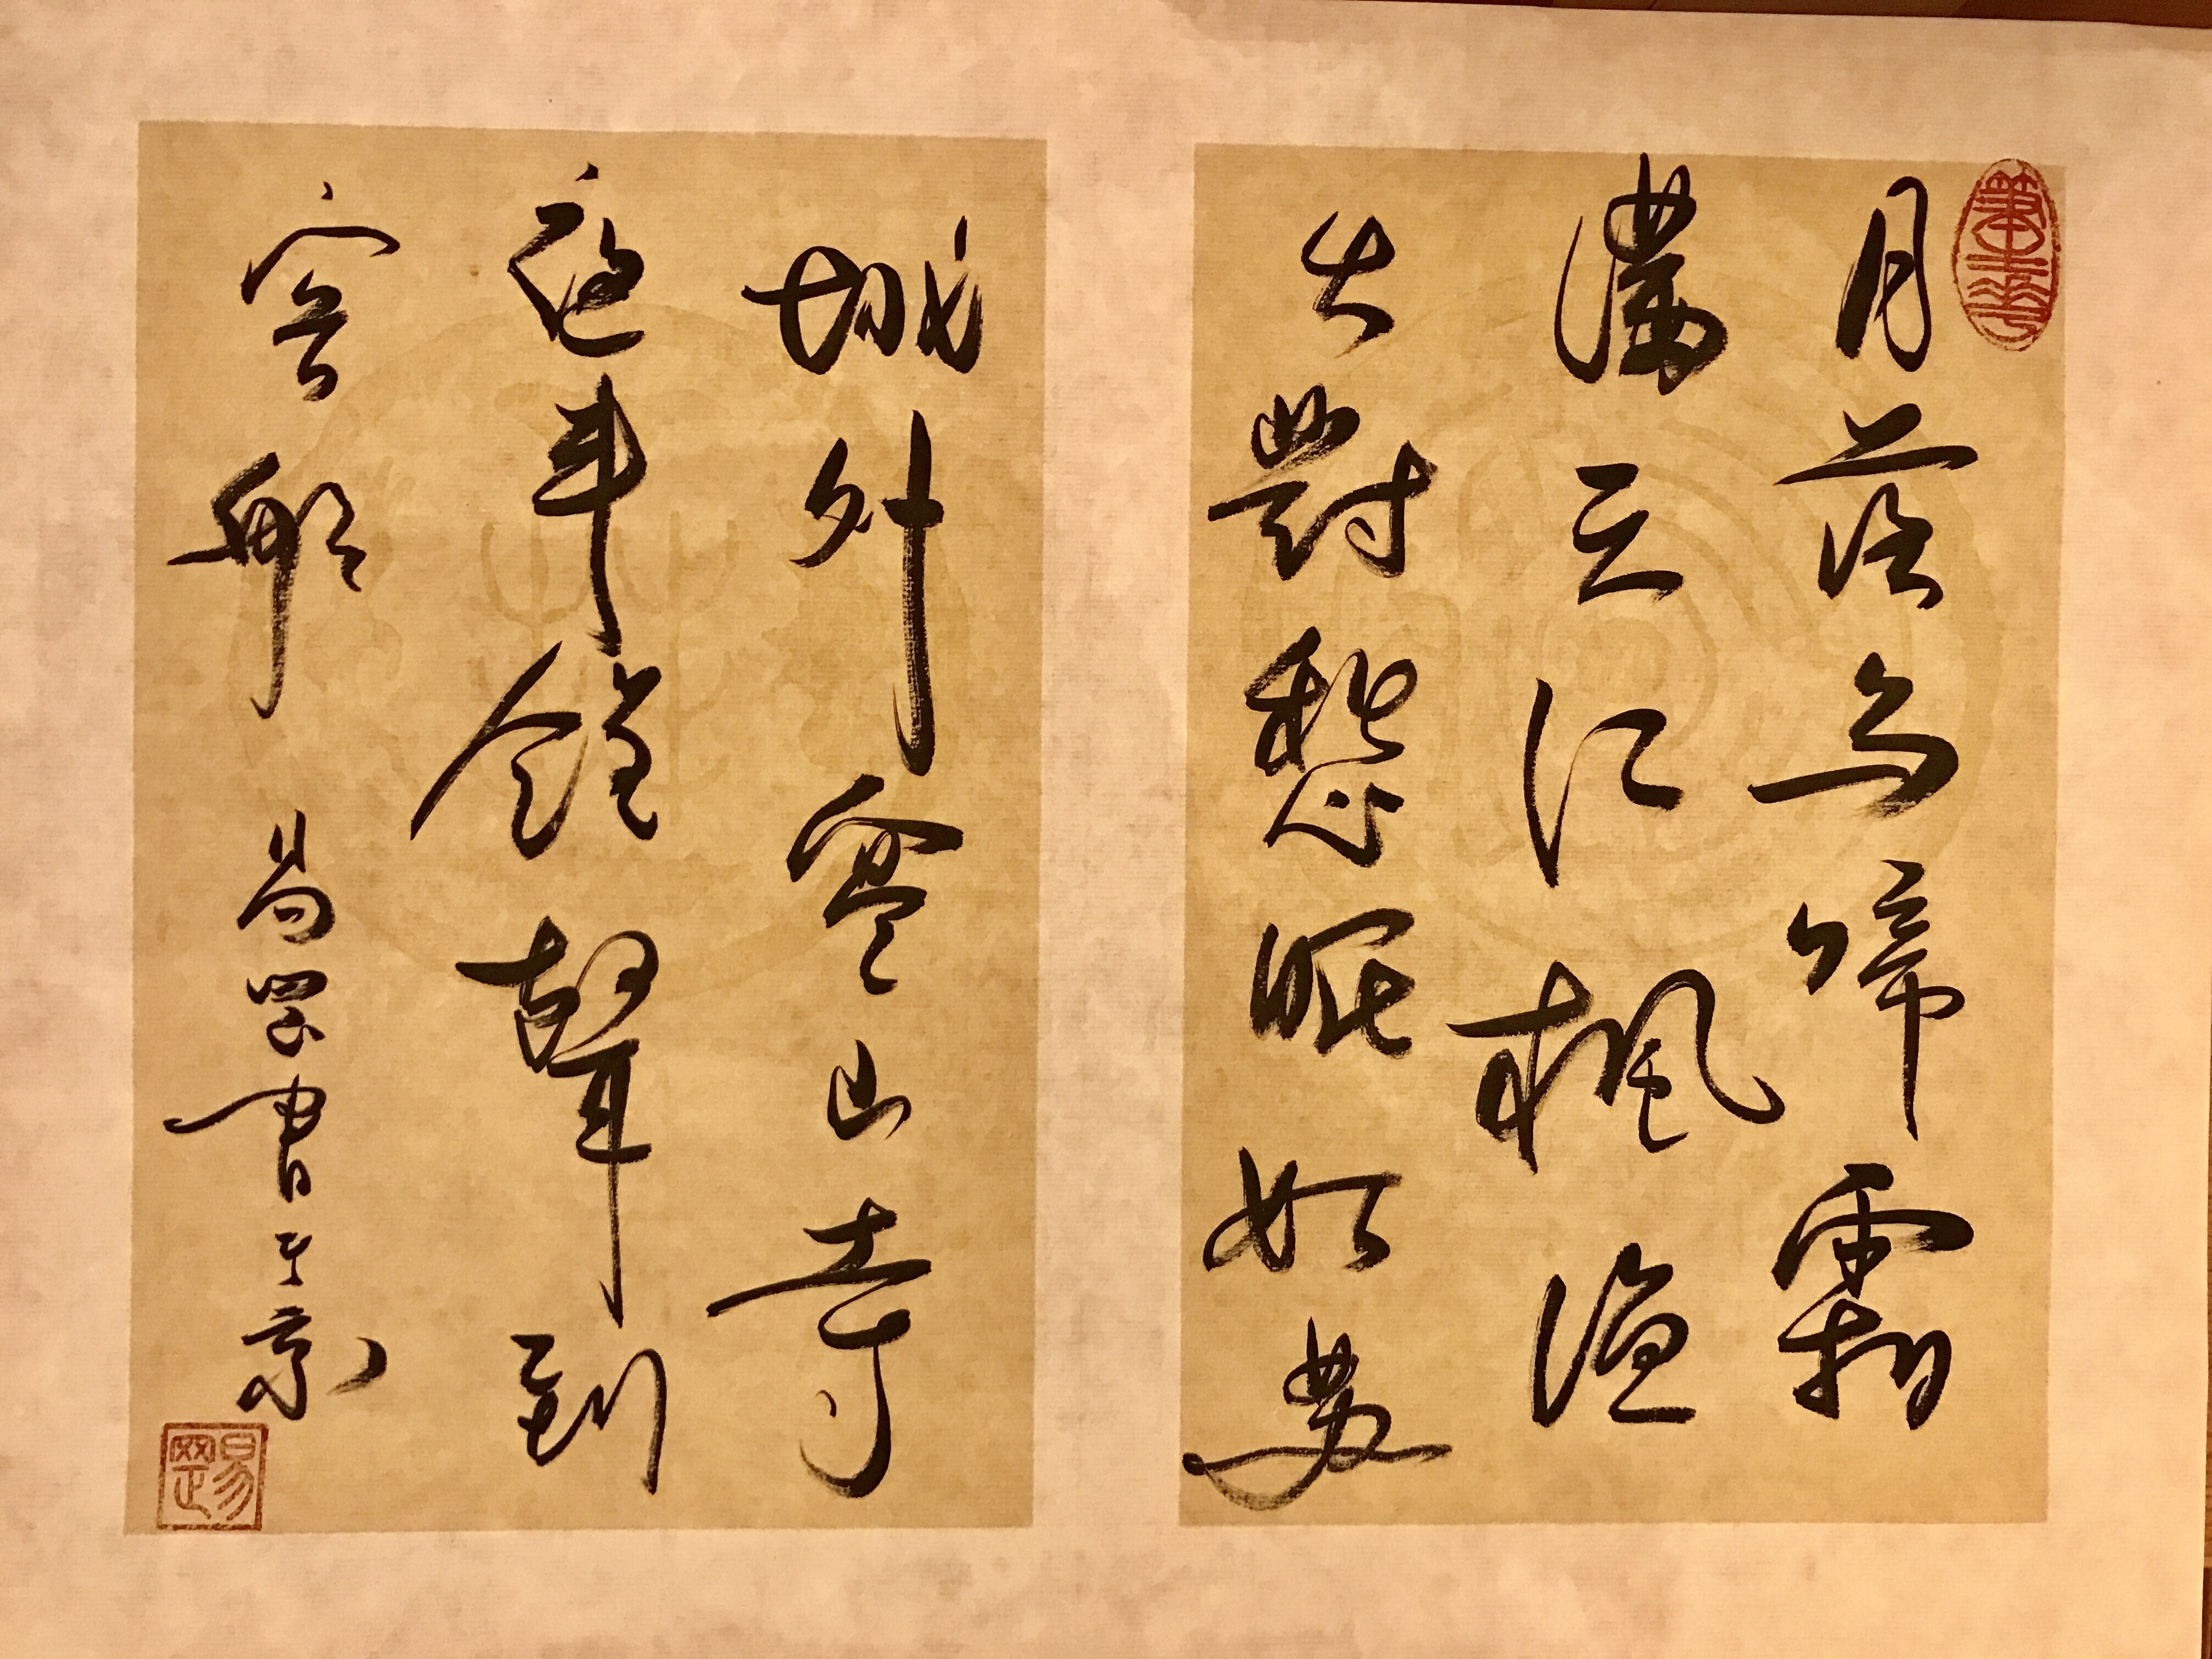 月落烏啼霜
滿天江楓漁
火對愁眠姑蘇
城外寒山寺
夜半鐘聲到
客船 易罡書于京
易罡